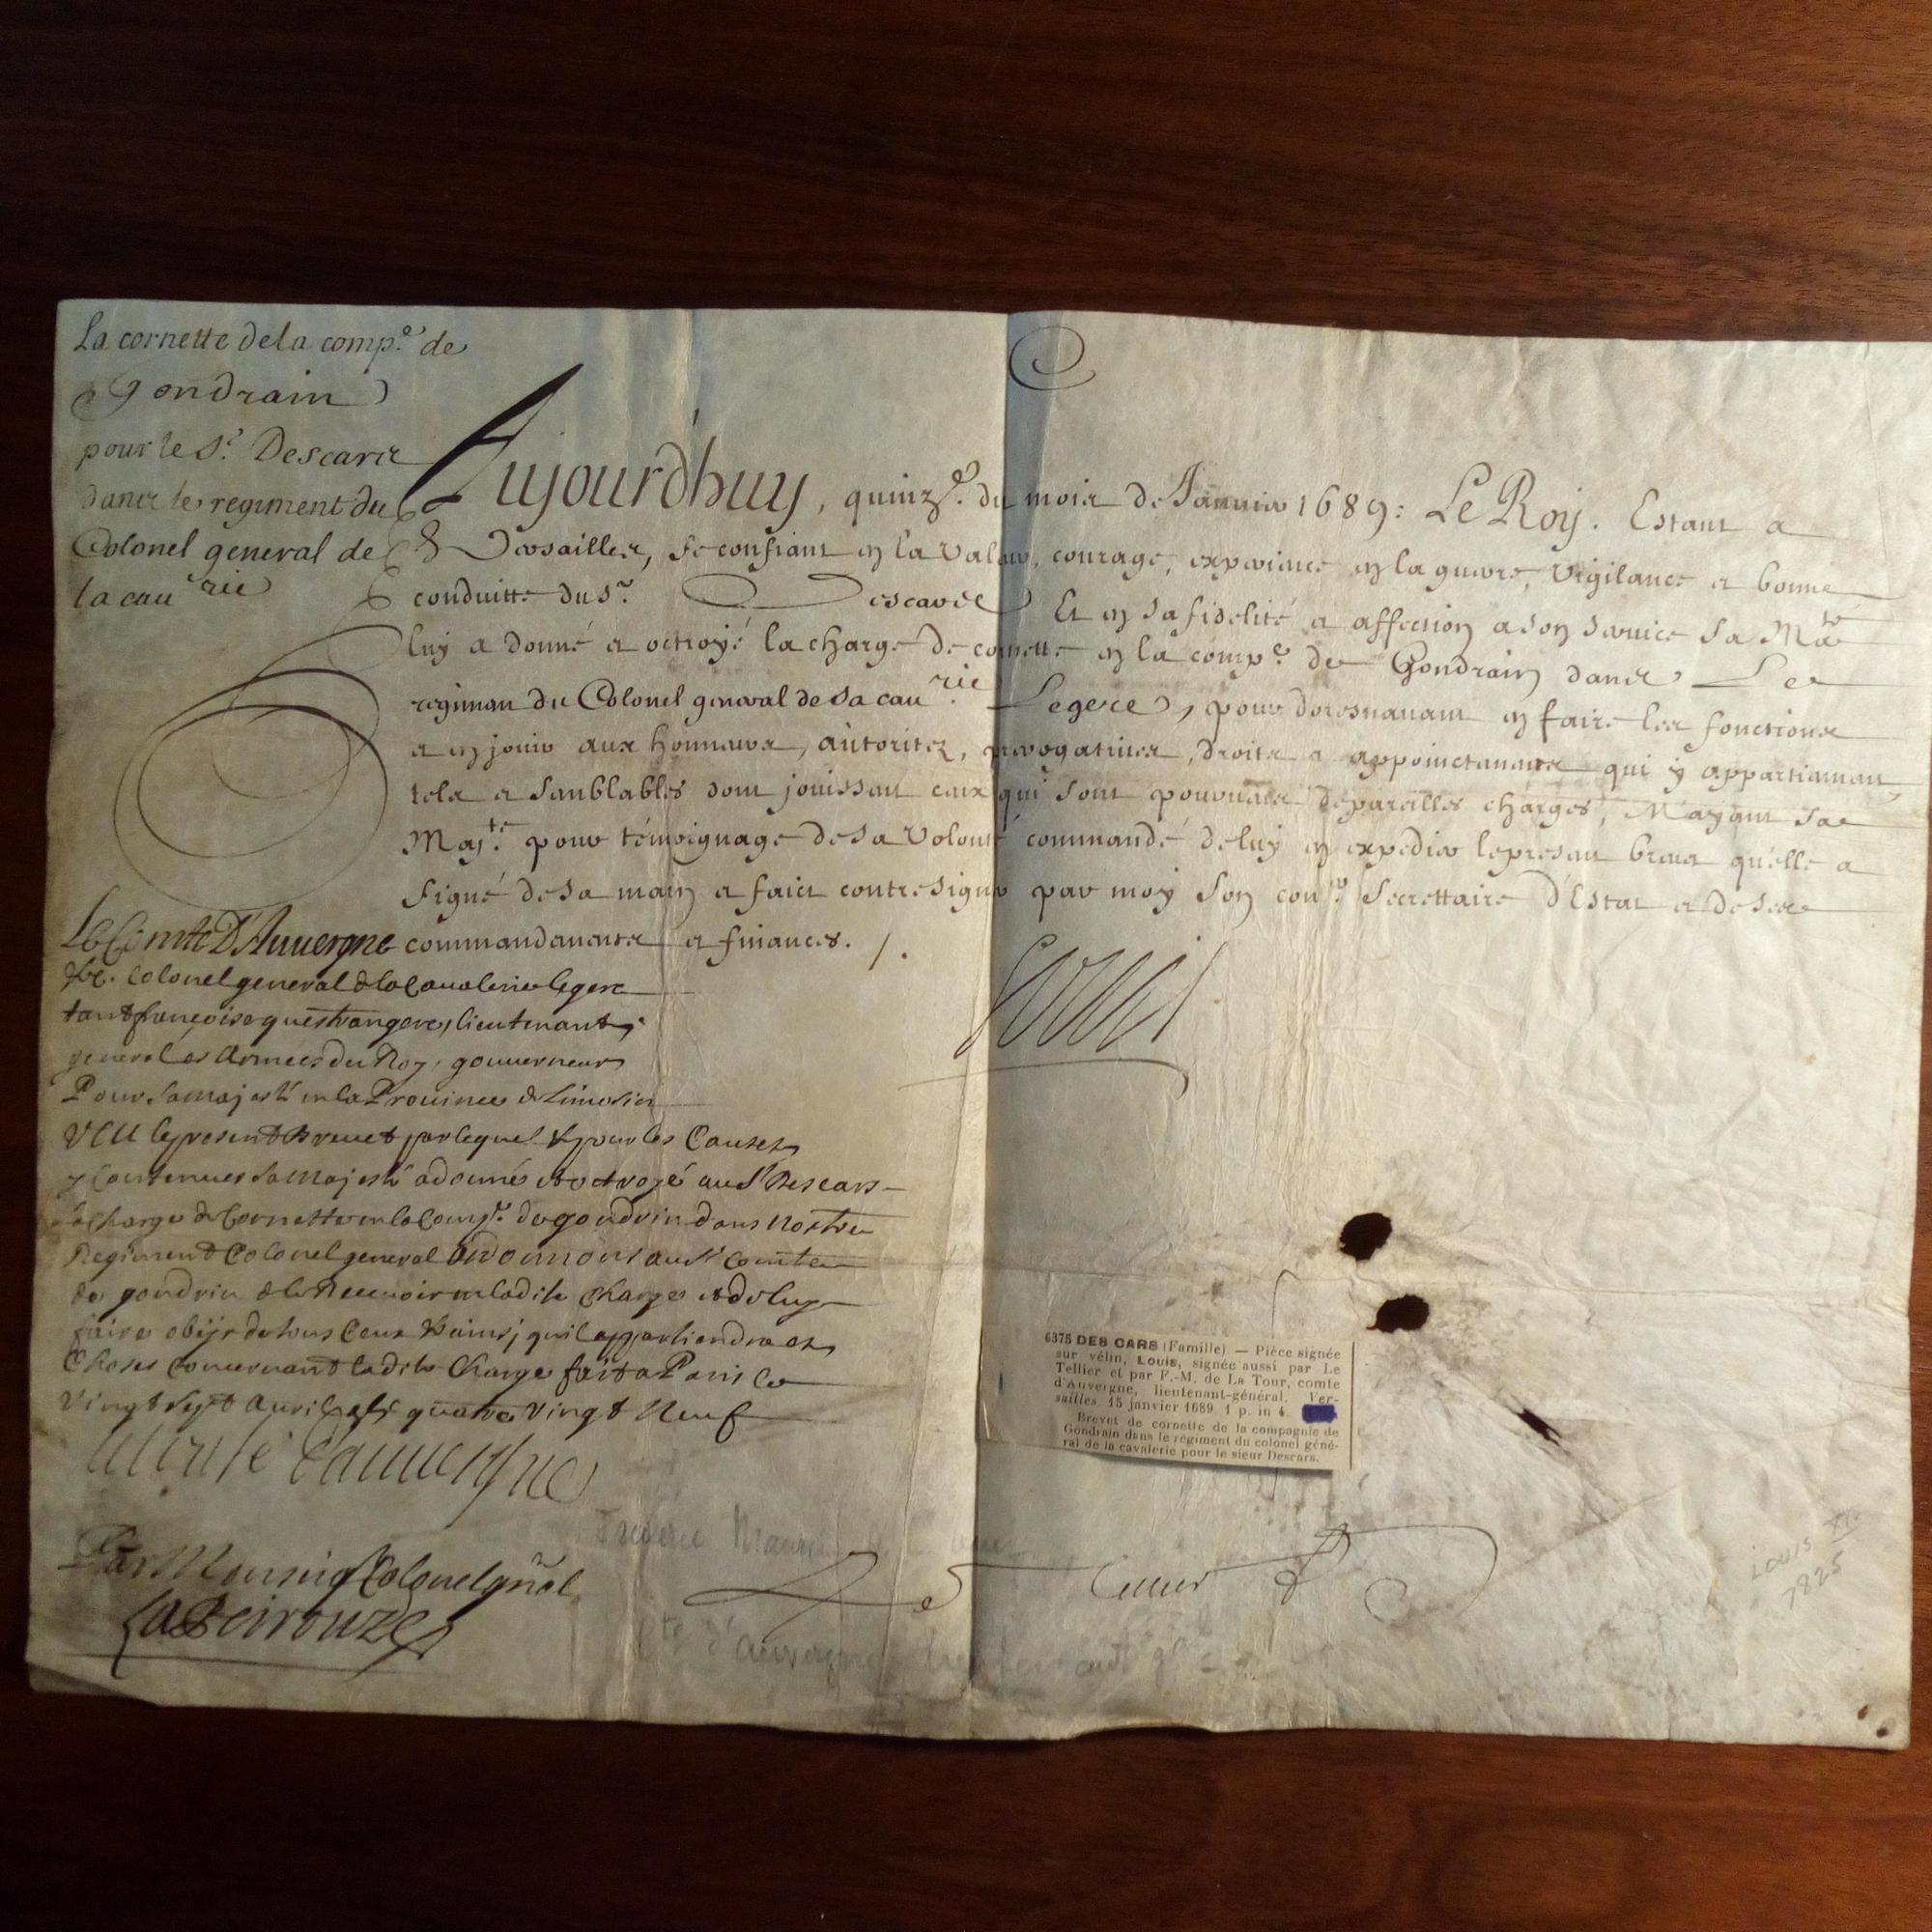 La cornette de la comp.e de
Gondrain
pour le S.r Descars
dans le regiment du
Colonel general de
la cau.rie
Aujourd'huy, quinz.e du mois de Januier 1689: Le Roy. Estant a
Versailles, se confiant en la valeur, courage, experience en la guerre, vigilance et bonne
conduitte du S.r Descars Et en sa fidelité et affection a son seruice Sa Ma.té
luy a donné et octroyé la charge de cornette en la comp.e de Gondrain dans Le
regiment du Colonel general de sa cau.rie Legere, pour doresnauant en faire les fonctions
et en jouir aux honneurs, autoritez, prerogatiues, droits et appoinctements qui y appartiennent
tels et semblables dont jouissent ceux qui sont pourueus de pareilles charges, M'ayant Sa
Maj.té pour témoignage de sa volonté commandé de luy en expedier le present breuet qu'elle a
signé de sa main et faict contresigner par moy son con.er Secrettaire d'Estat et de ses
commandements et finances. /.
Louis
Le Comte D'Auuergne
&c. Colonel general de la Caualerie legere
tant françoise qu'estrangere, lieutenant
general es Armées du Roy, gouuerneur
Pour sa majesté en la Prouince de Limosin
VEU le present Breuet par lequel & pour les Causes
y Contenues sa Majesté a donné et octroyé au S.r Descars
la charge de Cornette en la Comp.e de gondrin dans Nostre
Regiment Colonel general Ordonnons au S.r Comte
de gondrin de le Receuoir en ladite charge et de luy
faire obëir de tous Ceux & ainsj qu'il appartiendra es
Choses concernant ladite Charge fait a Paris le
vingt sept auril gbj quatre vingt Neuf
le Comte d'auuergne
Par Monseig.r Colonel gñal
LaPeirouze
Le Tellier
Frederic Maurice de la Tour
Cte d'Auvergne lieutenant gl
6375 DES CARS (Famille) — Pièce signée
sur vélin, LOUIS, signée aussi par Le
Tellier et par F.-M. de La Tour, comte
d'Auvergne, lieutenant-général. Ver-
sailles, 15 janvier 1689. 1 p. in 4.
Brevet de cornette de la compagnie de
Gondrain dans le régiment du colonel géné-
ral de la cavalerie pour le sieur Descars.
Louis XIV
7825